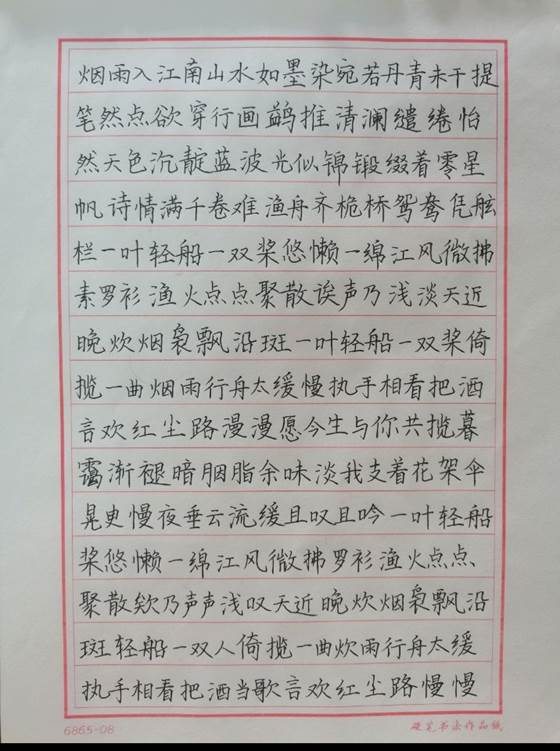 烟雨入江南山水如墨染宛若丹青未干提
笔然点欲穿行画鹢推清澜缱绻怡
然天色沉靛蓝波光似锦缎缀着零星
帆诗情满千卷难渔舟齐桅桥鸳鸯凭舷
栏一叶轻船一双桨悠懒一绵江风微拂
素罗衫渔火点点聚散诶声乃浅淡天近
晚炊烟袅飘沿斑一叶轻船一双桨倚
揽一曲烟雨行舟太缓慢执手相看把酒
言欢红尘路漫漫愿今生与你共揽暮
霭渐褪暗胭脂余味淡我支着花架伞
晃史慢夜垂云流缓且叹且吟一叶轻船
桨悠懒一绵江风微拂罗衫渔火点点、
聚散欸乃声声浅叹天近晚炊烟袅飘沿
斑轻船一双人倚揽一曲炊雨行舟太缓
执手相看把洒当歌言欢红尘路慢慢
6865-08
硬笔书法作品纸